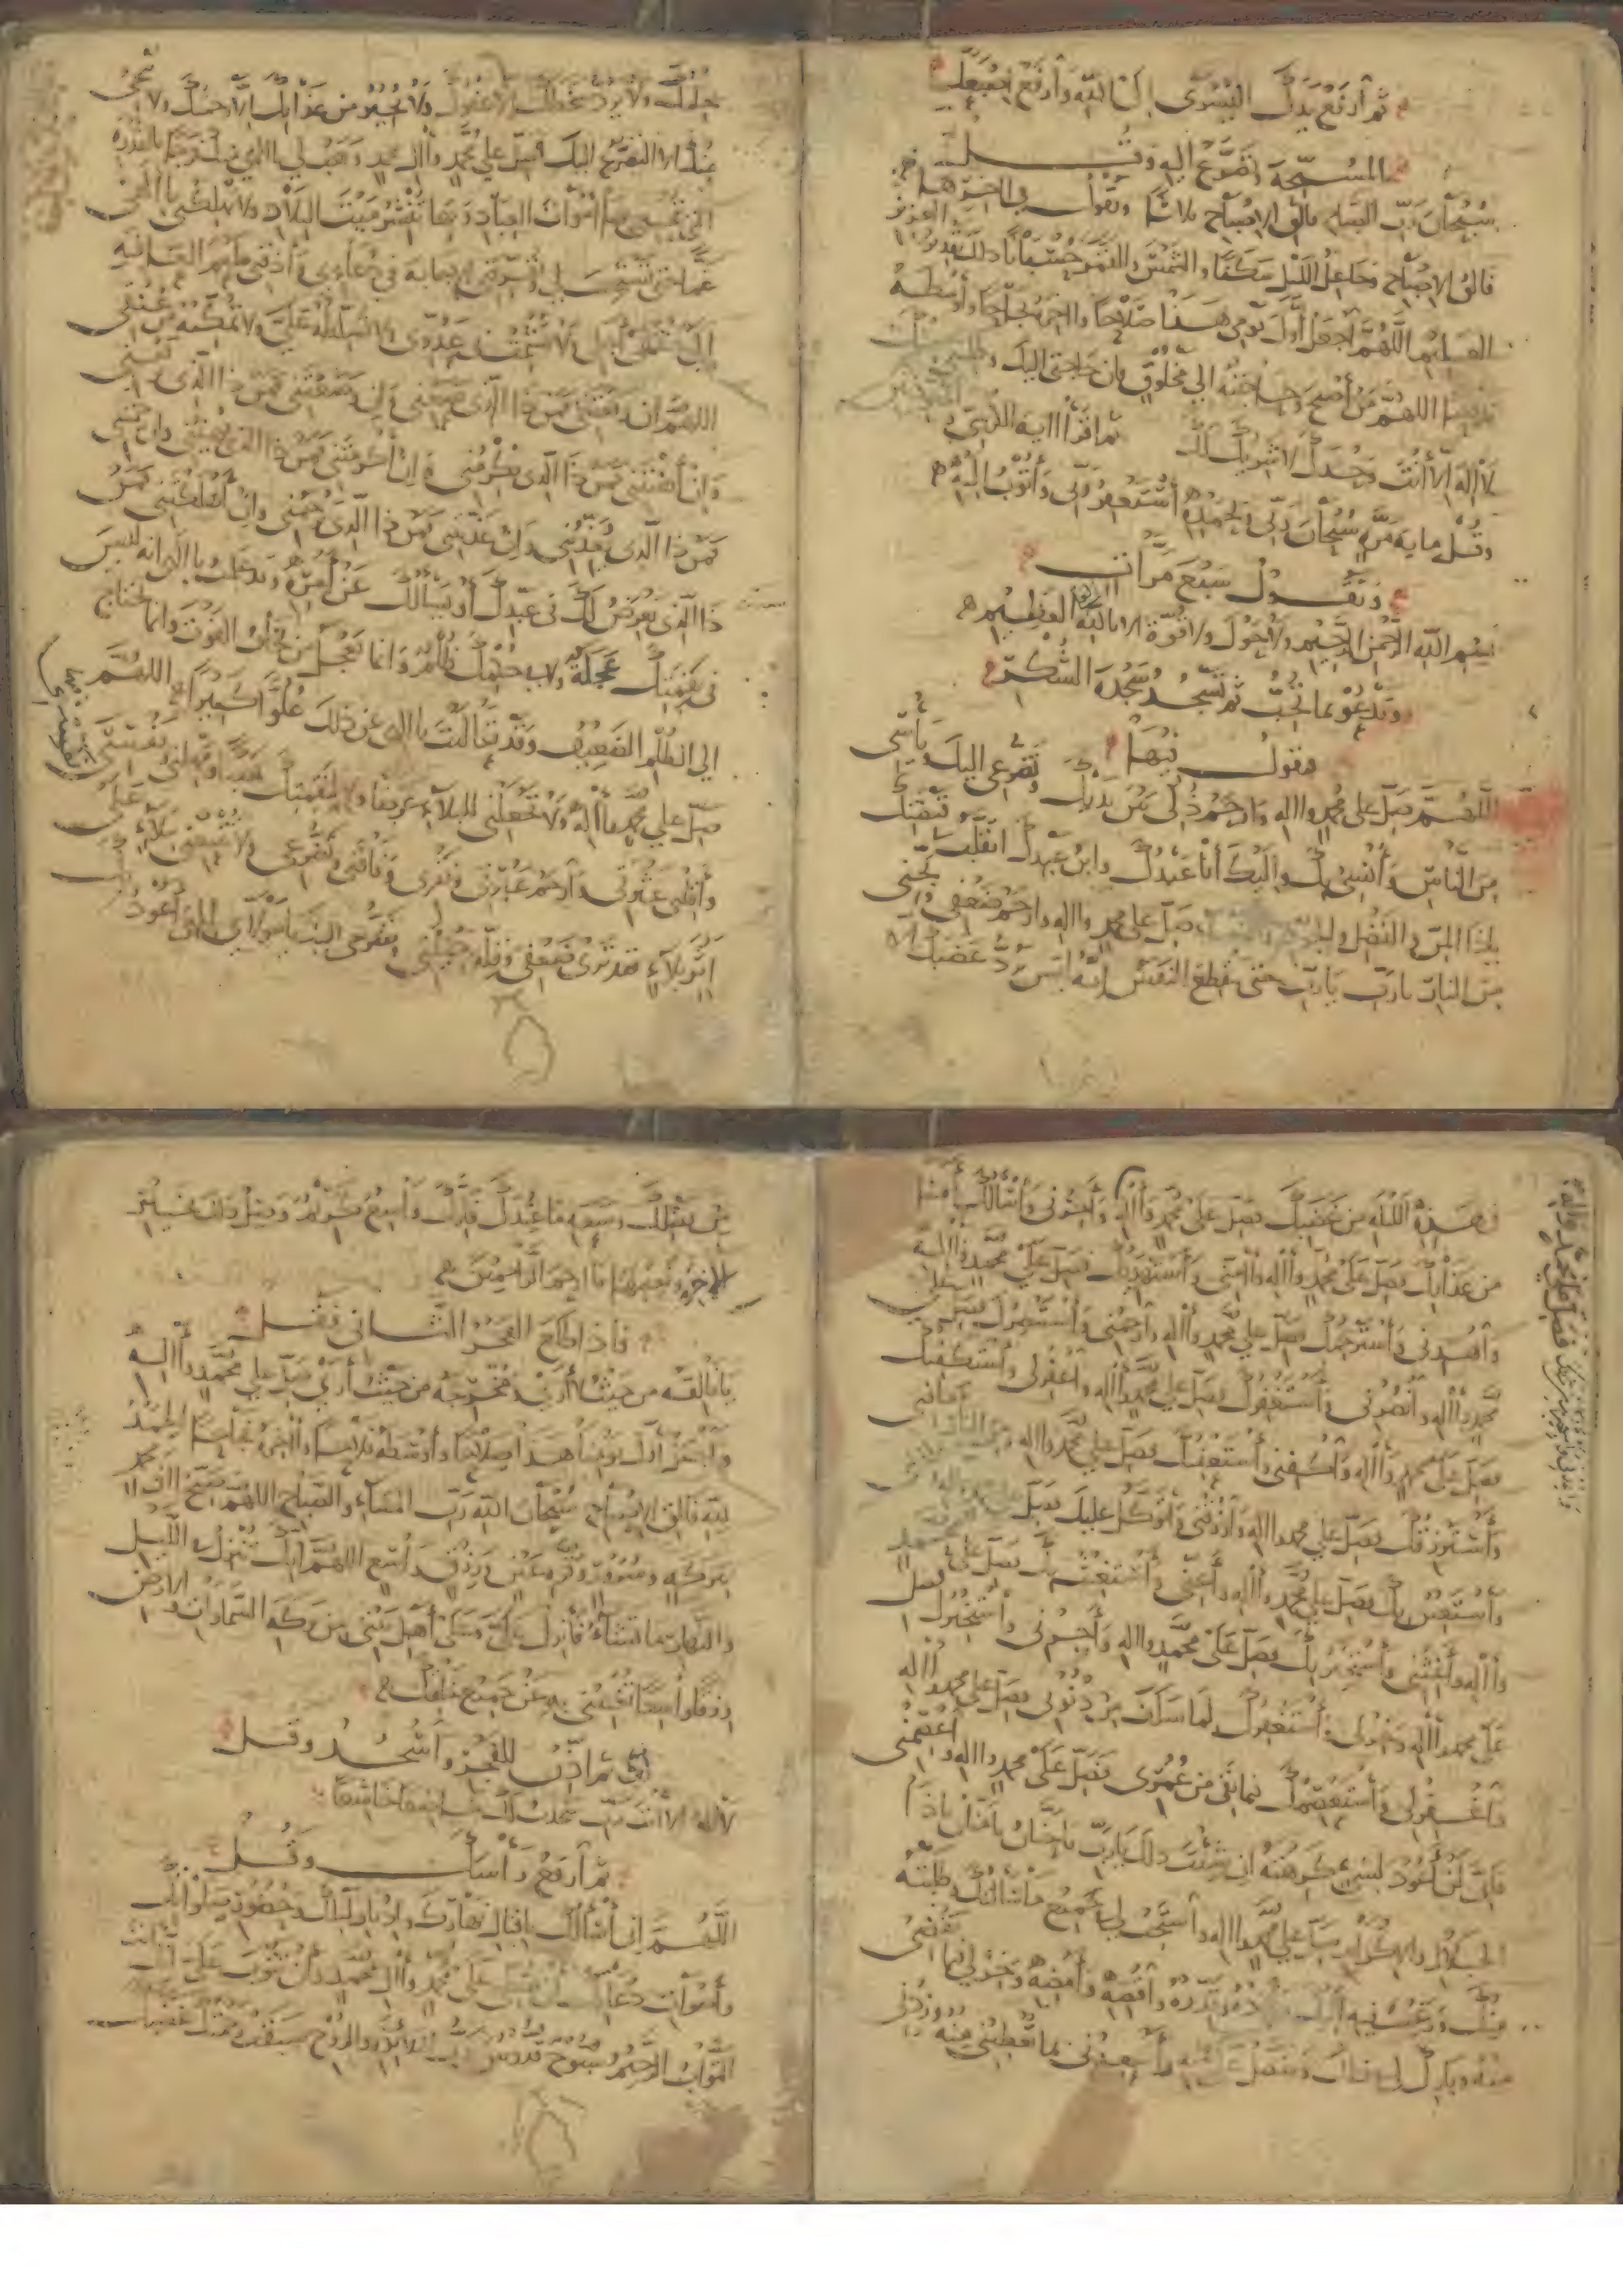 ثم ارفع يدك اليسرى الى الله وارفع اصبعك
المسبحة وتضرع اليه وقل
سبحان رب الصباح فالق الاصباح ثلاثا وتقول في اخرها
فالق الاصباح وجاعل الليل سكنا والشمس والقمر حسبانا ذلك تقدير العزيز
العليم اللهم اجعل اول يومي هذا صلاحا واخره نجاحا واوسطه
اللهم من اصبح وحاجته الى مخلوق فان حاجتي اليك وطلبتي منك
لا اله الا انت وحدك لا شريك لك ثم اقرأ اية الكرسي
وقل ماية مرة سبحان ربي وبحمده استغفر ربي واتوب اليه
وتقول سبع مرات
بسم الله الرحمن الرحيم ولا حول ولا قوة الا بالله العلي العظيم
وتدعو بما تحب ثم تسجد سجدة الشكر
وتقول فيها
اللهم صل على محمد واله وارحم ذلي بين يديك وتضرعي اليك ويأسي
من الناس وأنسي بك واليك أنا عبدك وابن عبدك اتقلب في قبضتك
يا ذا المن والفضل والجود صل على محمد واله وارحم ضعفي ونجني
من النار يارب يارب حتى ينقطع النفس إنه ليس يرد غضبك الا
حلمك ولا يرد سخطك الا عفوك ولا يجير من عذابك الا رحمتك ولا ينجي
منك الا التضرع اليك فصل على محمد وال محمد وهب لي يا الهي منك فرجا بالقدرة
التي تحيي بها اموات العباد وبها تنشر ميت البلاد ولا تهلكني يا الهي
غما حتى تستجيب لي وتعرفني الاجابة في دعاءي واذقني طعم العافية
الى منتهى اجلي ولا تشمت بي عدوي ولا تسلطه علي ولا تمكنه من عنقي
اللهم ان رفعتني فمن ذا الذي يضعني وان وضعتني فمن ذا الذي يرفعني
وان أهنتني فمن ذا الذي يكرمني وان أكرمتني فمن ذا الذي يهينني وان رحمتني
فمن ذا الذي يعذبني وان عذبتني فمن ذا الذي يرحمني وان أهلكتني فمن
ذا الذي يعرض لك في عبدك أو يسألك عن أمره وقد علمت يا الهي انه ليس
في نقمتك عجلة ولا في حكمك ظلم وانما يعجل من يخاف الفوت وانما يحتاج
الى الظلم الضعيف وقد تعاليت يا الهي عن ذلك علوا كبيرا اللهم
صل على محمد واله ولا تجعلني للبلاء غرضا ولا لنقمتك نصبا ومهلني ونفسني
وأقلني عثرتي وارحم عبرتي وفقري وفاقتي وتضرعي ولا تتبعني ببلاء على
اثر بلاء فقد ترى ضعفي وقلة حيلتي وتضرعي اليك يا مولاي الهي أعوذ بك
في هذه الليلة من غضبك فصل على محمد واله وأعذني وأسألك أمنا
من عذابك فصل على محمد واله وآمني وأستهديك فصل على محمد واله
واهدني وأسترحمك فصل على محمد واله وارحمني وأستنصرك فصل على
محمد واله وانصرني وأستغفرك فصل على محمد واله واغفر لي وأستكفيك
فصل على محمد واله واكفني وأستعفيك فصل على محمد واله
وأسترزقك فصل على محمد واله وارزقني وأتوكل عليك فصل
وأستعين بك فصل على محمد واله وأعني وأستغيث بك فصل على محمد
واله وأغثني وأستجير بك فصل على محمد واله وأجرني وأستخيرك فصل
على محمد واله وخر لي وأستغفرك لما سلف من ذنوبي فصل على محمد واله
واغفر لي وأستعصمك فيما بقي من عمري فصل على محمد واله واعصمني
فاني لن أعود لشيء كرهته ان شئت ذلك يا رب يا حنان يا منان يا ذا
الجلال والاكرام صل على محمد واله واستجب لي في جميع ما سألتك وطلبته
منك ورغبت فيه اليك وقدره واقضه وأمضه وخر لي فيما تقضي
منه وبارك لي في ذلك وتفضل علي به وأسعدني بما تعطيني منه وزدني
من فضلك وسعة ما عندك فانك واسع كريم وصل ذلك بخير
الاخرة ونعيمها يا ارحم الراحمين
فاذا طلع الفجر الثاني فقل
يا فالقه من حيث لا أرى ومخرجه من حيث أرى صل على محمد واله
واجعل أول يومنا هذا صلاحا وأوسطه فلاحا وآخره نجاحا الحمد
لله فالق الاصباح سبحان الله رب المساء والصباح اللهم صبح ال محمد
ببركة وسرور وقرة عين ورزق واسع اللهم انك تنزل في الليل
والنهار ما تشاء فأنزل علي وعلى أهل بيتي من بركة السماوات والارض
رزقا واسعا تغنيني به عن جميع خلقك
ثم اذن للفجر واسجد وقل
لا اله الا انت رب سجدت لك خاضعا خاشعا
ثم ارفع رأسك وقل
اللهم اني أسألك باقبال نهارك وادبار ليلك وحضور صلواتك
وأصوات دعاتك أن تصلي على محمد وال محمد وان تتوب علي انك انت
التواب الرحيم سبوح قدوس رب الملائكة والروح سبقت رحمتك غضبك